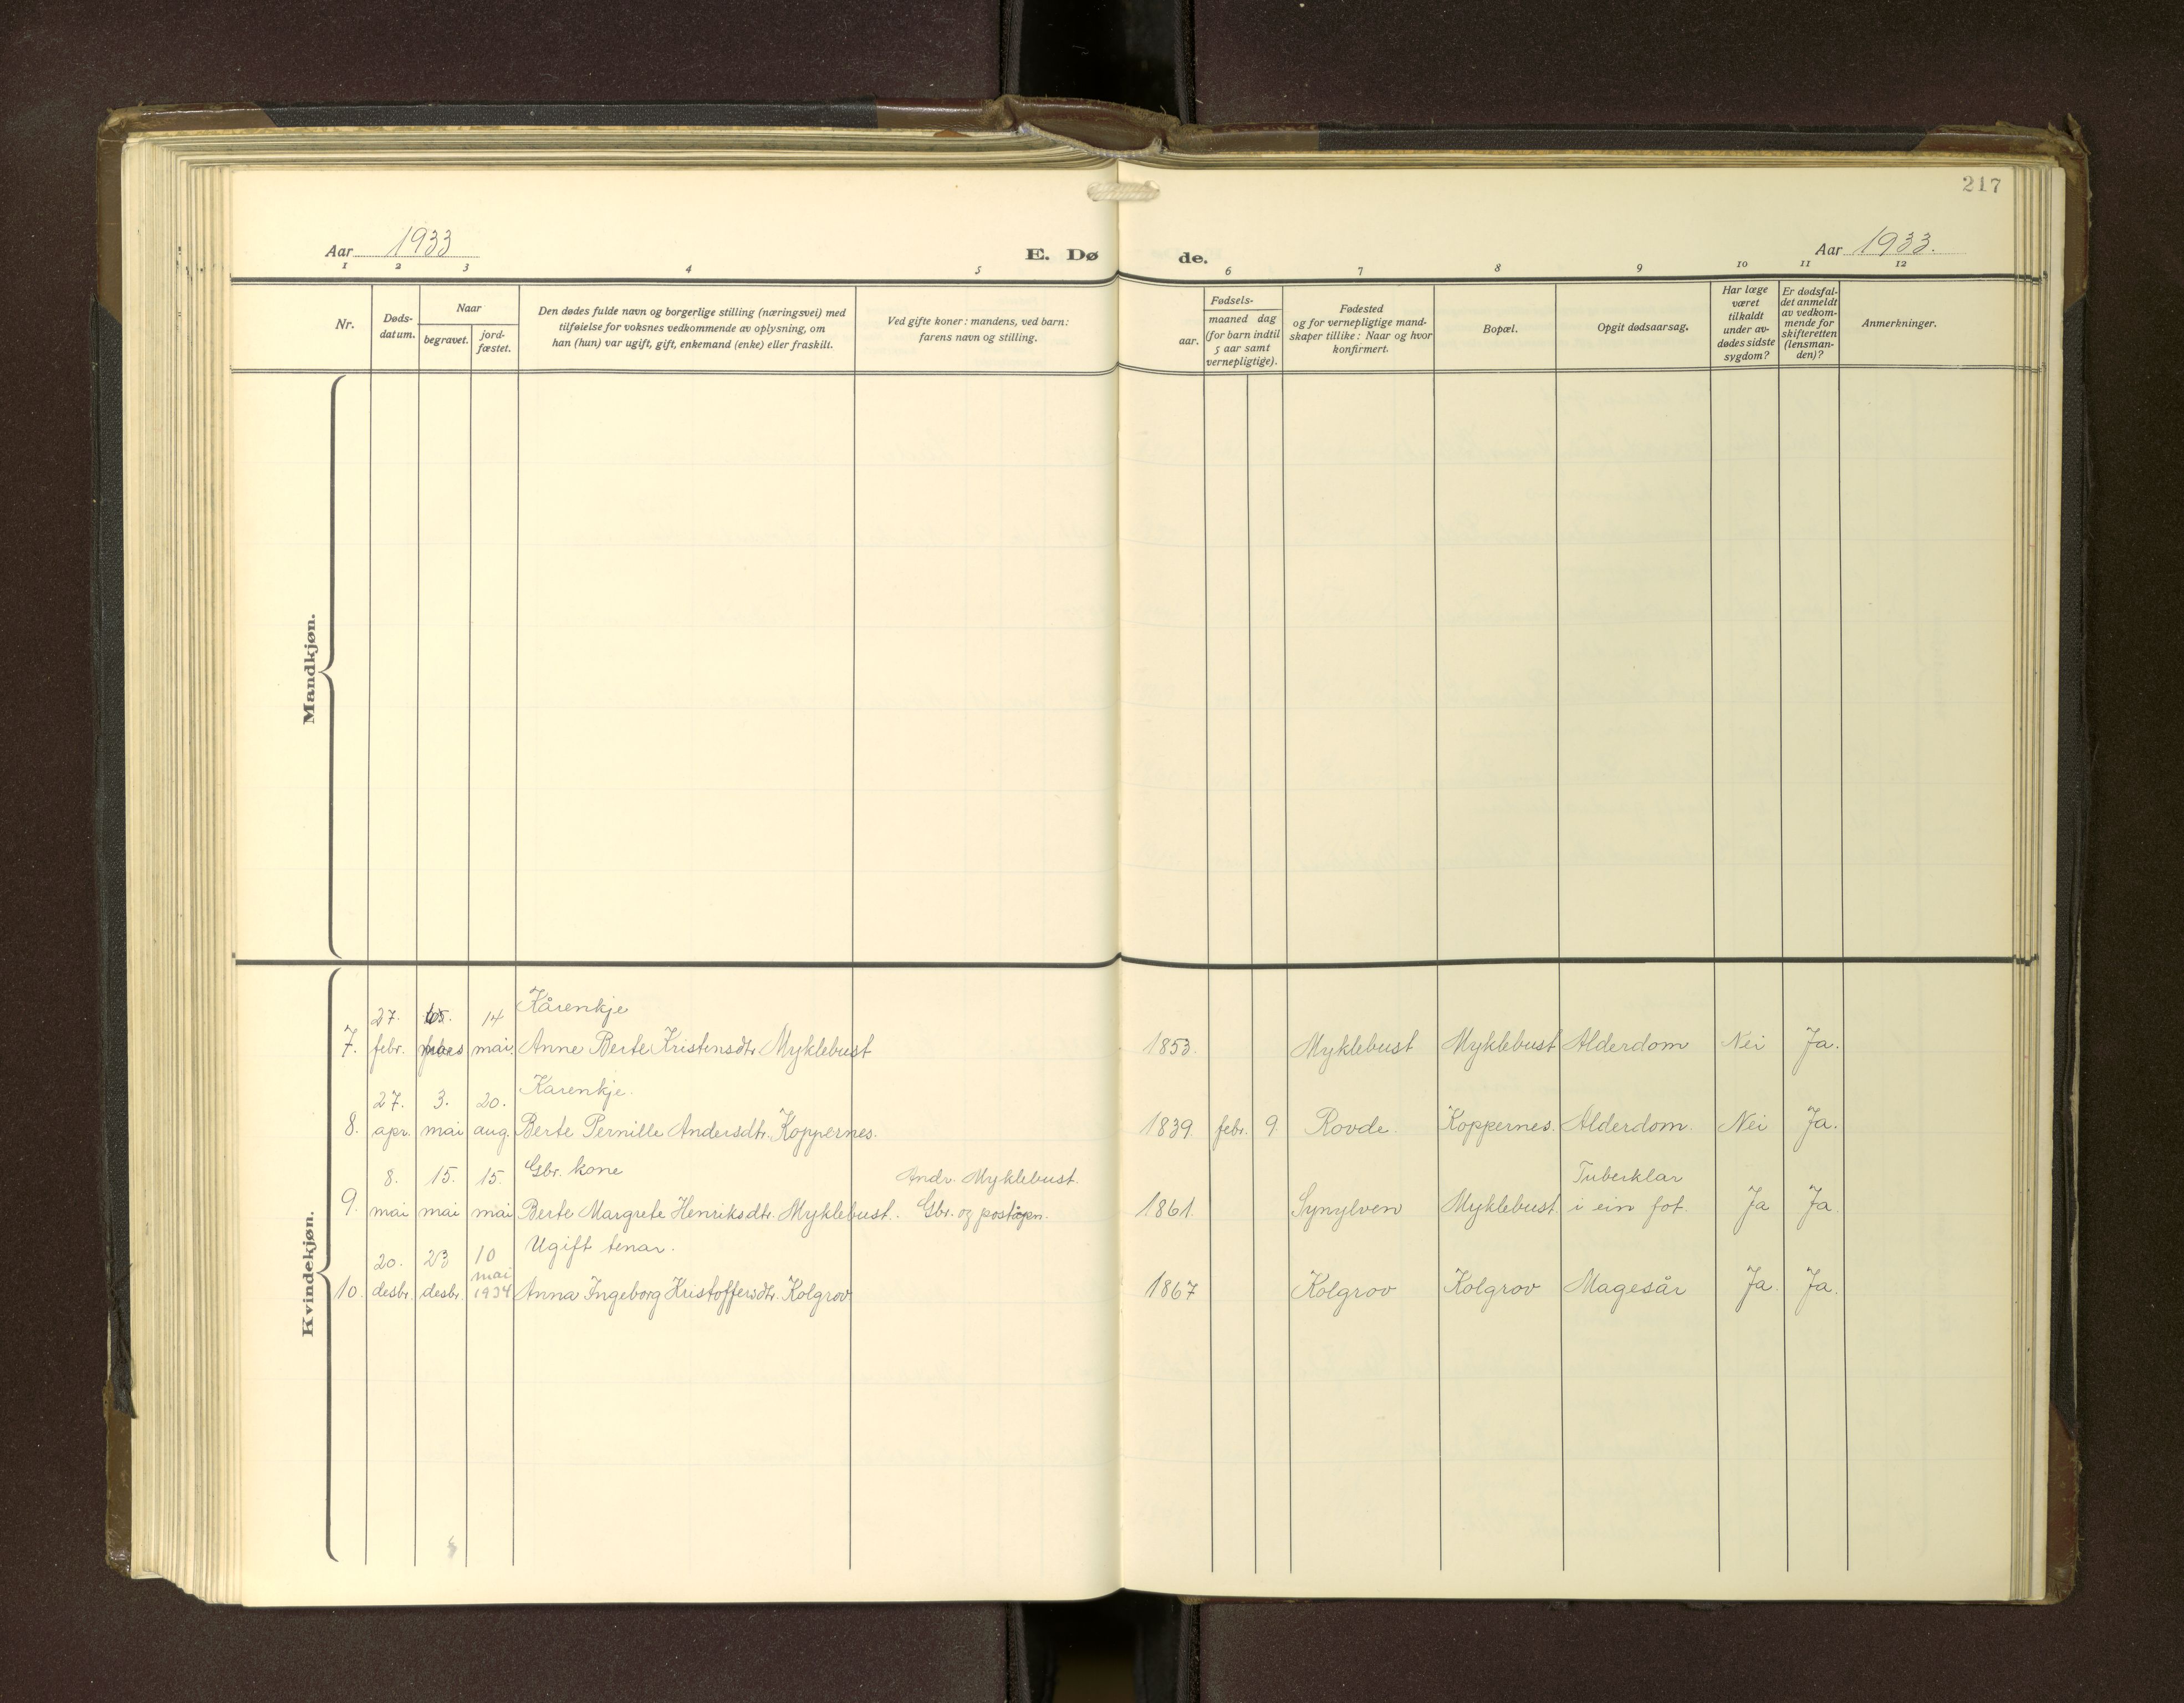 217
Aar 1933
E. Dø
de.
Aar 1933.
1 2 3 4 5 6 7 8 9 10 11 12
Nr.
Døds-
datum.
Naar
begravet.
jord-
fæstet.
Den dødes fulde navn og borgerlige stilling (næringsvei) med
tilføielse for voksnes vedkommende av oplysning, om
han (hun) var ugift, gift, enkemand (enke) eller fraskilt.
Ved gifte koner: mandens, ved barn:
farens navn og stilling.
Fødsels-
aar.
maaned dag
(for barn indtil
5 aar samt
vernepligtige).
Fødested
og for vernepligtige mand-
skaper tillike: Naar og hvor
konfirmert.
Bopæl.
Opgit dødsaarsag.
Har læge
været
tilkaldt
under av-
dødes sidste
sygdom?
Er dødsfal-
det anmeldt
av vedkom-
mende for
skifteretten
(lensman-
den)?
Anmerkninger.
Mandkjøn.
Kvindekjøn.
27. 14 Kårenkje
7. febr. mars mai. Anne Berte Kristensdtr. Myklebust 1853. Myklebust Myklebust Alderdom Nei Ja.
27. 3. 20. Karenkje.
8. apr. mai aug. Berte Pernille Andersdtr. Koppernes. 1839. febr. 9. Rovde. Koppernes. Alderdom. Nei Ja.
8. 15. 15. Gbr. kone Andr. Myklebust. Tuberklar
9. mai mai mai Berte Margrete Henriksdtr. Myklebust. Gbr. og poståpn. 1861. Synylven Myklebust. i ein fot. Ja Ja
20. 23 10 Ugift tenar.
mai
10. desbr. desbr. 1934 Anna Ingeborg Kristoffersdtr. Kolgrov 1867 Kolgrov Kolgrov Magesår Ja. Ja.